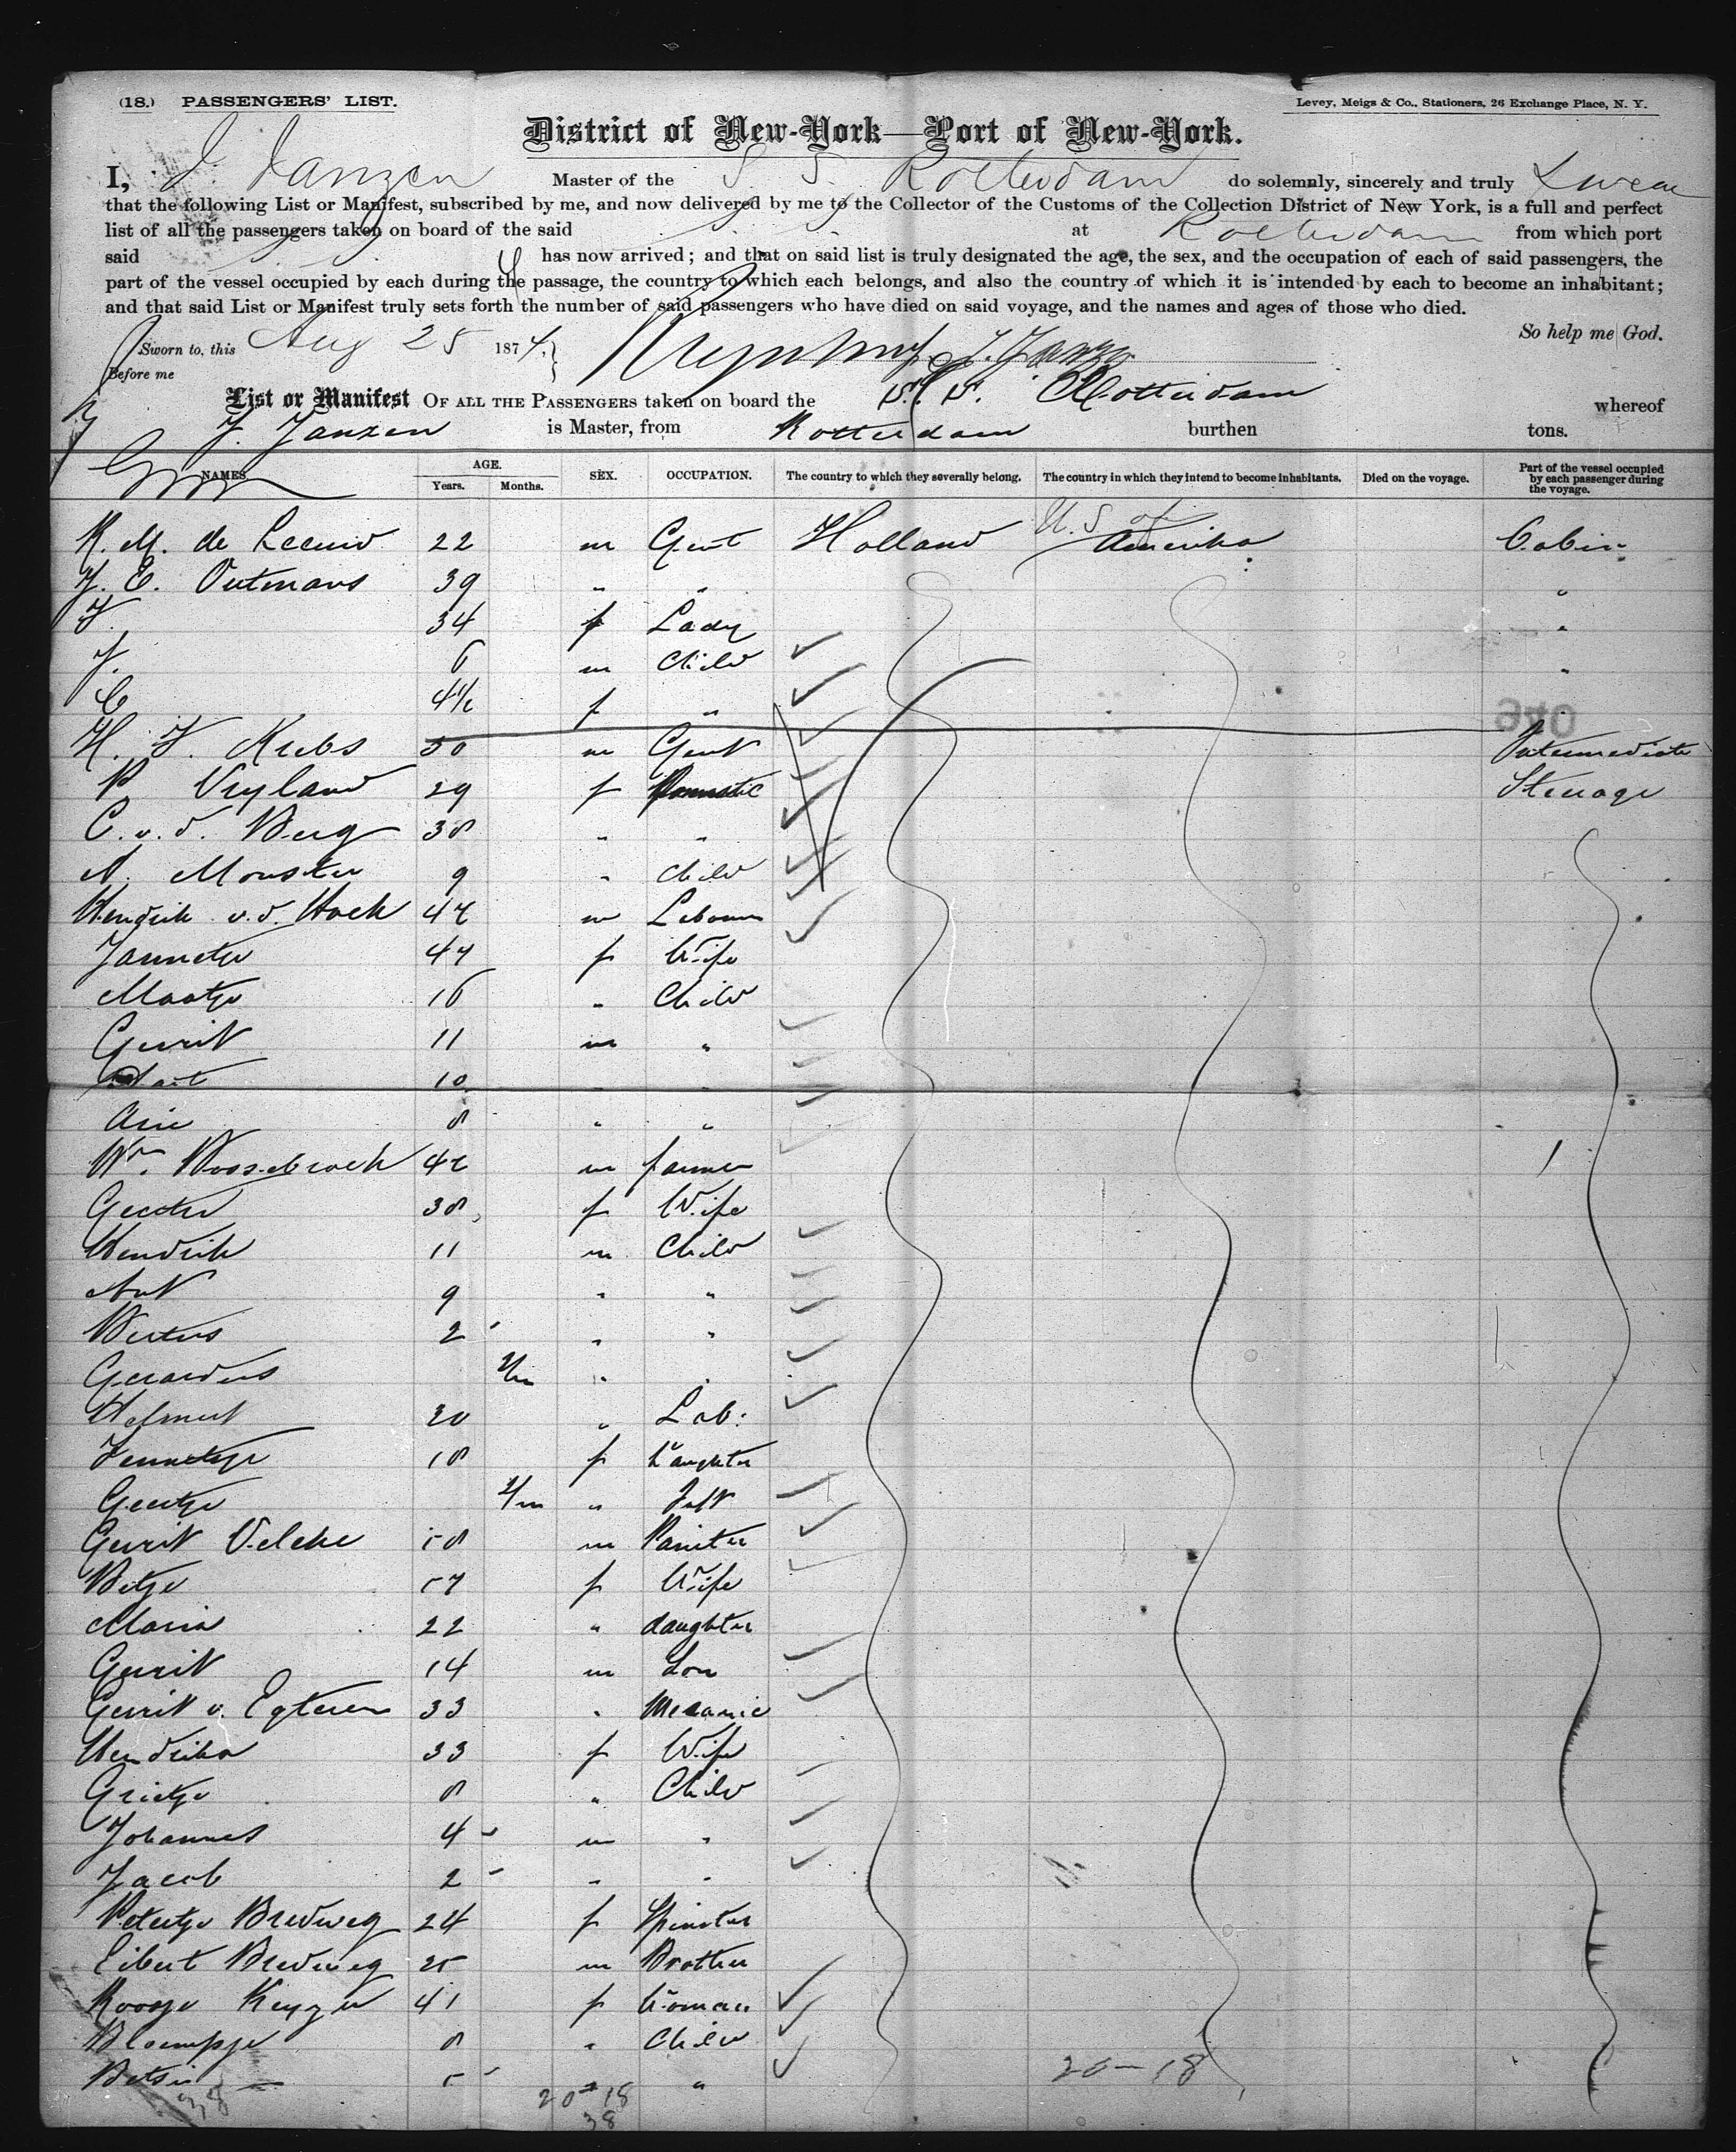 (18.) PASSENGERS' LIST.
Levey, Meigs & Co., Stationers, 26 Exchange Place, N. Y.
District of New-York—Port of New-York.
I, J. Janzen Master of the S. S. Rotterdam do solemnly, sincerely and truly swear
that the following List or Manifest, subscribed by me, and now delivered by me to the Collector of the Customs of the Collection District of New York, is a full and perfect
list of all the passengers taken on board of the said at Rotterdam from which port
said has now arrived; and that on said list is truly designated the age, the sex, and the occupation of each of said passengers, the
part of the vessel occupied by each during the passage, the country to which each belongs, and also the country of which it is intended by each to become an inhabitant;
and that said List or Manifest truly sets forth the number of said passengers who have died on said voyage, and the names and ages of those who died.
So help me God.
Sworn to, this Aug 25 1874. J. Janzen
Before me
List or Manifest OF ALL THE PASSENGERS taken on board the S. S. Rotterdam whereof
J. Janzen is Master, from Rotterdam burthen tons.
NAMES. AGE. Years. Months. SEX. OCCUPATION. The country to which they severally belong. The country in which they intend to become inhabitants. Died on the voyage. Part of the vessel occupied by each passenger during the voyage.
K. M. de Leeuw 22 m Gent Holland U. S. of Amerika Cabin
J. E. Outmans 39 " " "
J. 34 f Lady "
J. 6 m Child "
C 4½ f "
H. J. Krebs 30 m Gent Intermediate
P. Vryland 29 f Domestic Steerage
C. v. d. Berg 38 " "
A. Monster 9 " Child
Hendrik v. d. Hoek 42 m Labourer
Jannetje 44 f Wife
Maatje 16 " Child
Gerrit 11 m "
10 " "
Arie 8 " "
Wm. Roosebrock 42 m farmer
Geertje 38 f Wife
Hendrik 11 m Child
Art 9 " "
Bertus 2 " "
Gerardus "
Helmert 20 " Lab:
Jennetje 18 f Daughter
Geertje "
Gerrit Veleke 58 m Painter
Betje 57 f Wife
Maria 22 " daughter
Gerrit 14 m Son
Gerrit v. Egteren 33 " Mecanic
Hendrika 33 f Wife
Grietje 8 " Child
Johannes 4 m "
Jacob 2 " "
Petertje Bredweg 24 f Spinster
Eibert Bredweg 25 m Brother
Roosje Keyzer 41 f Woman
Bloempje 8 " Child
Betsie 5 " "
20 - 18
20 18
38
38